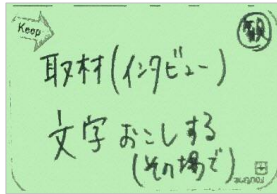 Keep
取材(インタビュー)
文字おこしする
(その場で)